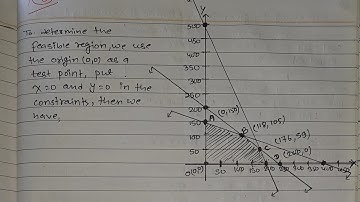 To determine the
feasible region, we use
the origin (0,0) as a
test point, put
x=0 and y=0 in the
constraints, then we
have,
Y
500
450
400
350
300
250
200
150
100
50
A
B
C
D
(118, 105)
(176, 59)
0(0,0)
50
100
150
200
250
X